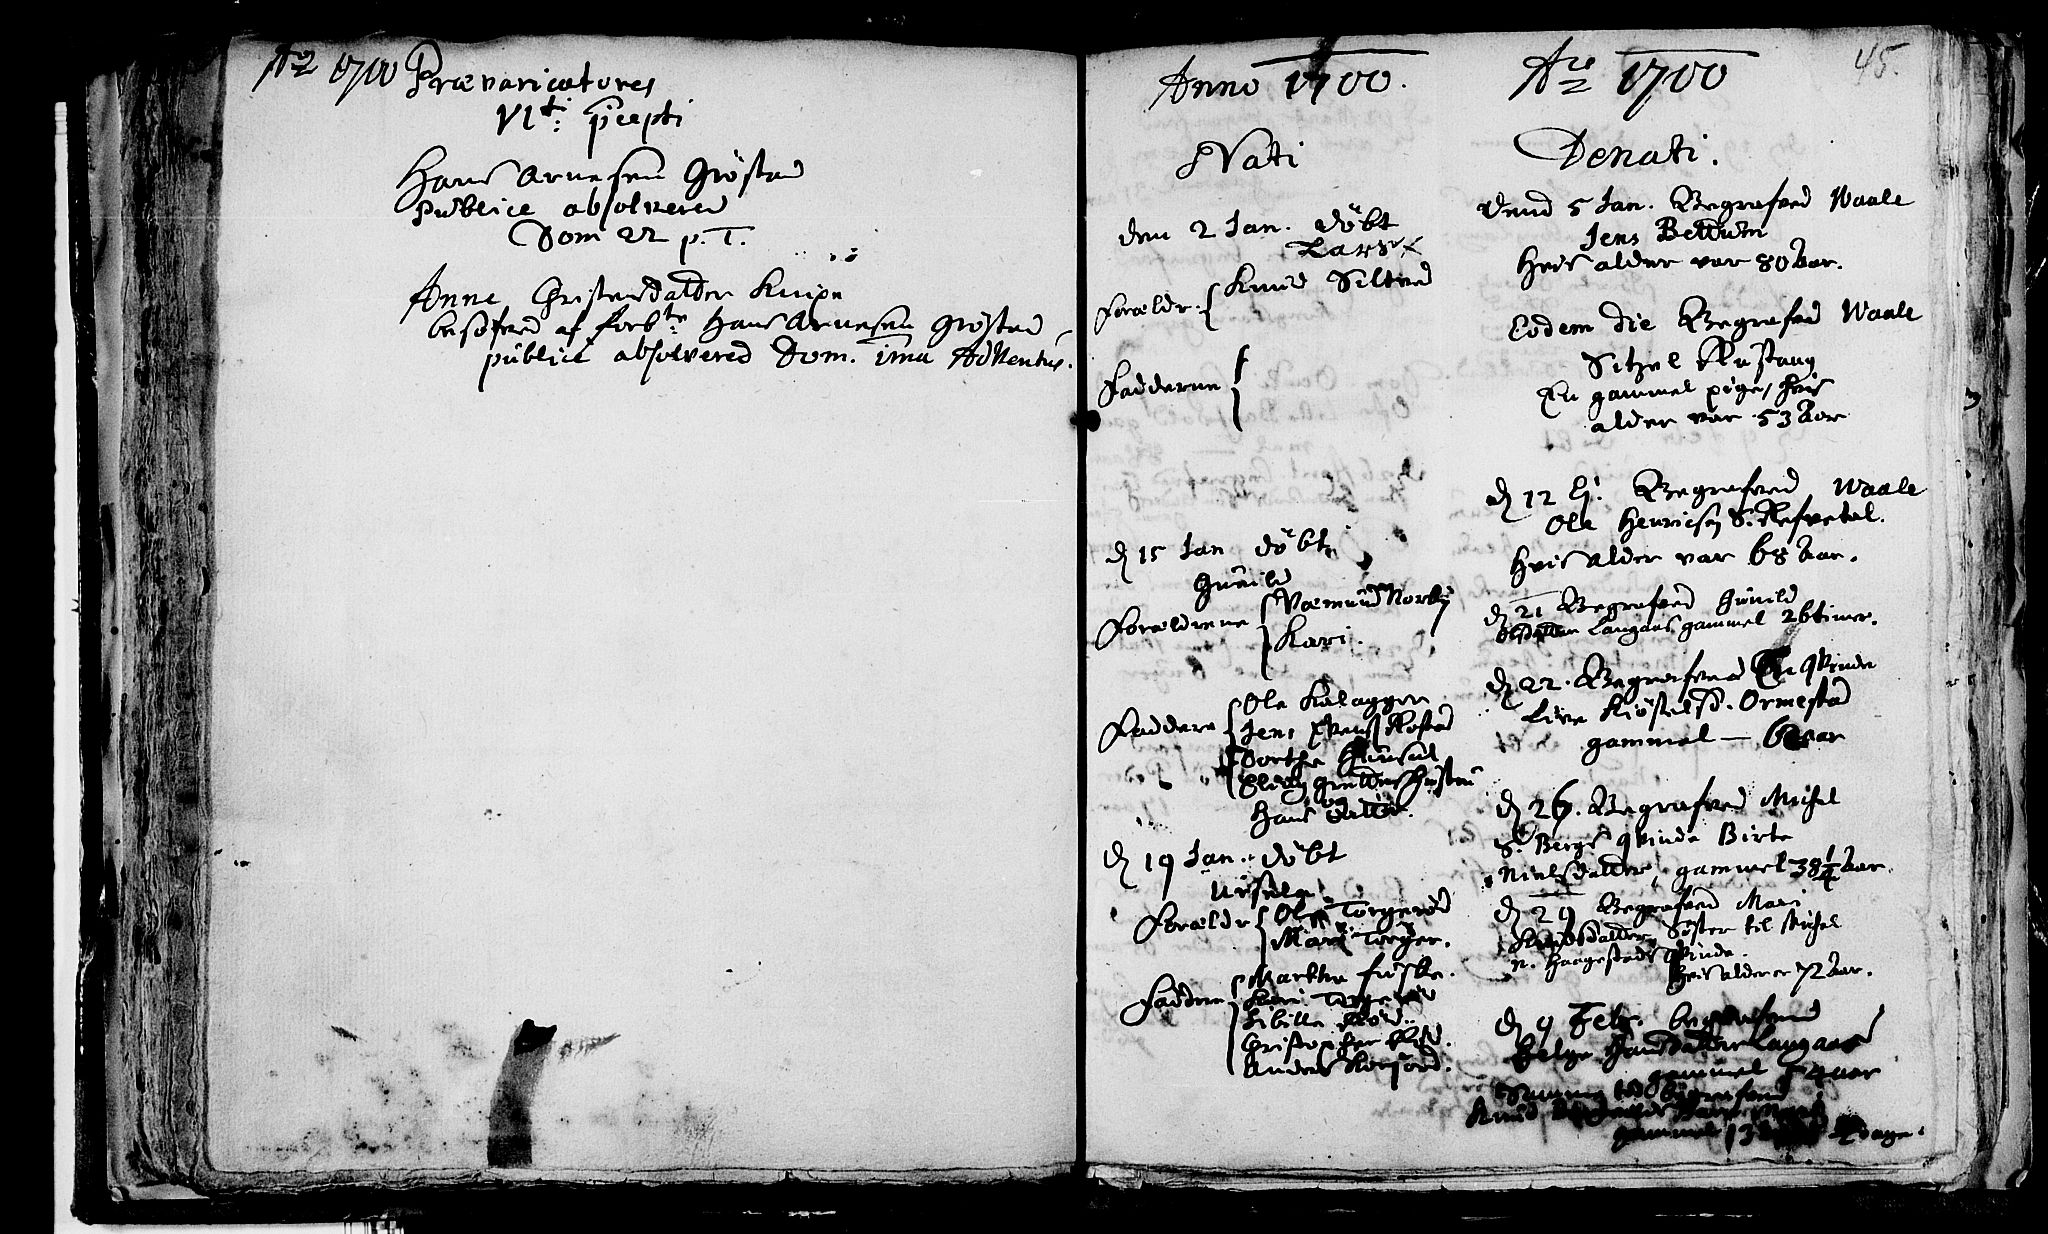 Ao 1700 Prævaricatores
VIti: pcepti
Hans Arnesen Grøstad
publice absolvered
Dom 22 p. T.
Anne Christensdatter
besofved af forbte: Hans Arnesen Grøstad
publice absolvered Dom. 1ma Adventus.
Anno 1700.
Nati
den 2 Jan. døbt
Lars
Forældr: Knud Siltved
Fadderne
d 15 Jan døbt
Gunild
Forældrene Væmund Norby
Kari.
Faddere Ole Kalagger
Jens
Dorthe
Hans datter.
d 19 Jan. døbt
Ursula
Forældr Ole Torgerød
Mari Torger.
Faddere Marthe fuske.
Kari Torgerød
Sibille
Christopher
Anders
45.
Ao 1700
Denati.
dend 5 Jan. Begrafved Waale
Jens Bettum
Hvis alder var 80 Aar.
Eodem die Begrafved Waale
Sitzel Rustang
En gammel pige, hvis
alder var 53 Aar
d 12 Ej. Begrafved Waale
Ole Henricsøn S. Refvetal.
Hvis alder var 68 Aar.
d 21 Begrafved Gunild
Olsdatter Langaas gammel 26 timer.
d 22. Begrafved En qvinde
Live Kiøstelsd. Ormestad
gammel — Aar
d 26. Begrafved Michel
S. Bergs qvinde Birte
Nielsdatter, gammel 38 1/4 Aar.
d 29 Begrafved Mari
Knudsdatter, Søster til Michel
N. Haagestads qvinde.
Hvis alder er 72 Aar.
d 9 Febr. begrafved
Helge Hansdatter Langaas
gammel Aar
Samme tid begrafved
Knud
gammel 13 dage.